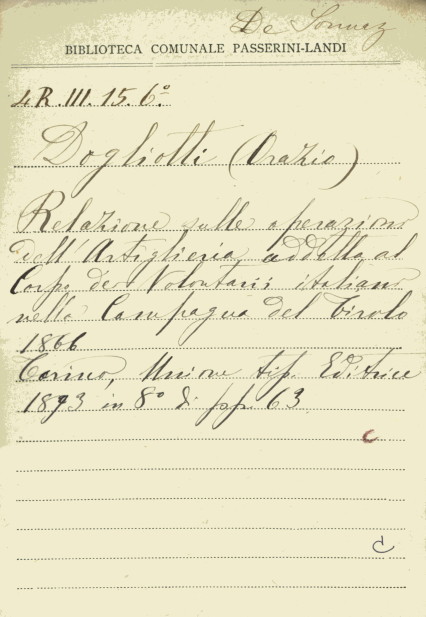 De Sonnaz
BIBLIOTECA COMUNALE PASSERINI-LANDI
4R.III.15.6º
Dogliotti (Orazio)
Relazione sulle operazioni
dell'Artiglieria addetta al
Corpo dei Volontarii italiani
nella Campagna del Tirolo
1866
Torino, Unione tip. Editrice
1893 in 8º di pp. 63
C